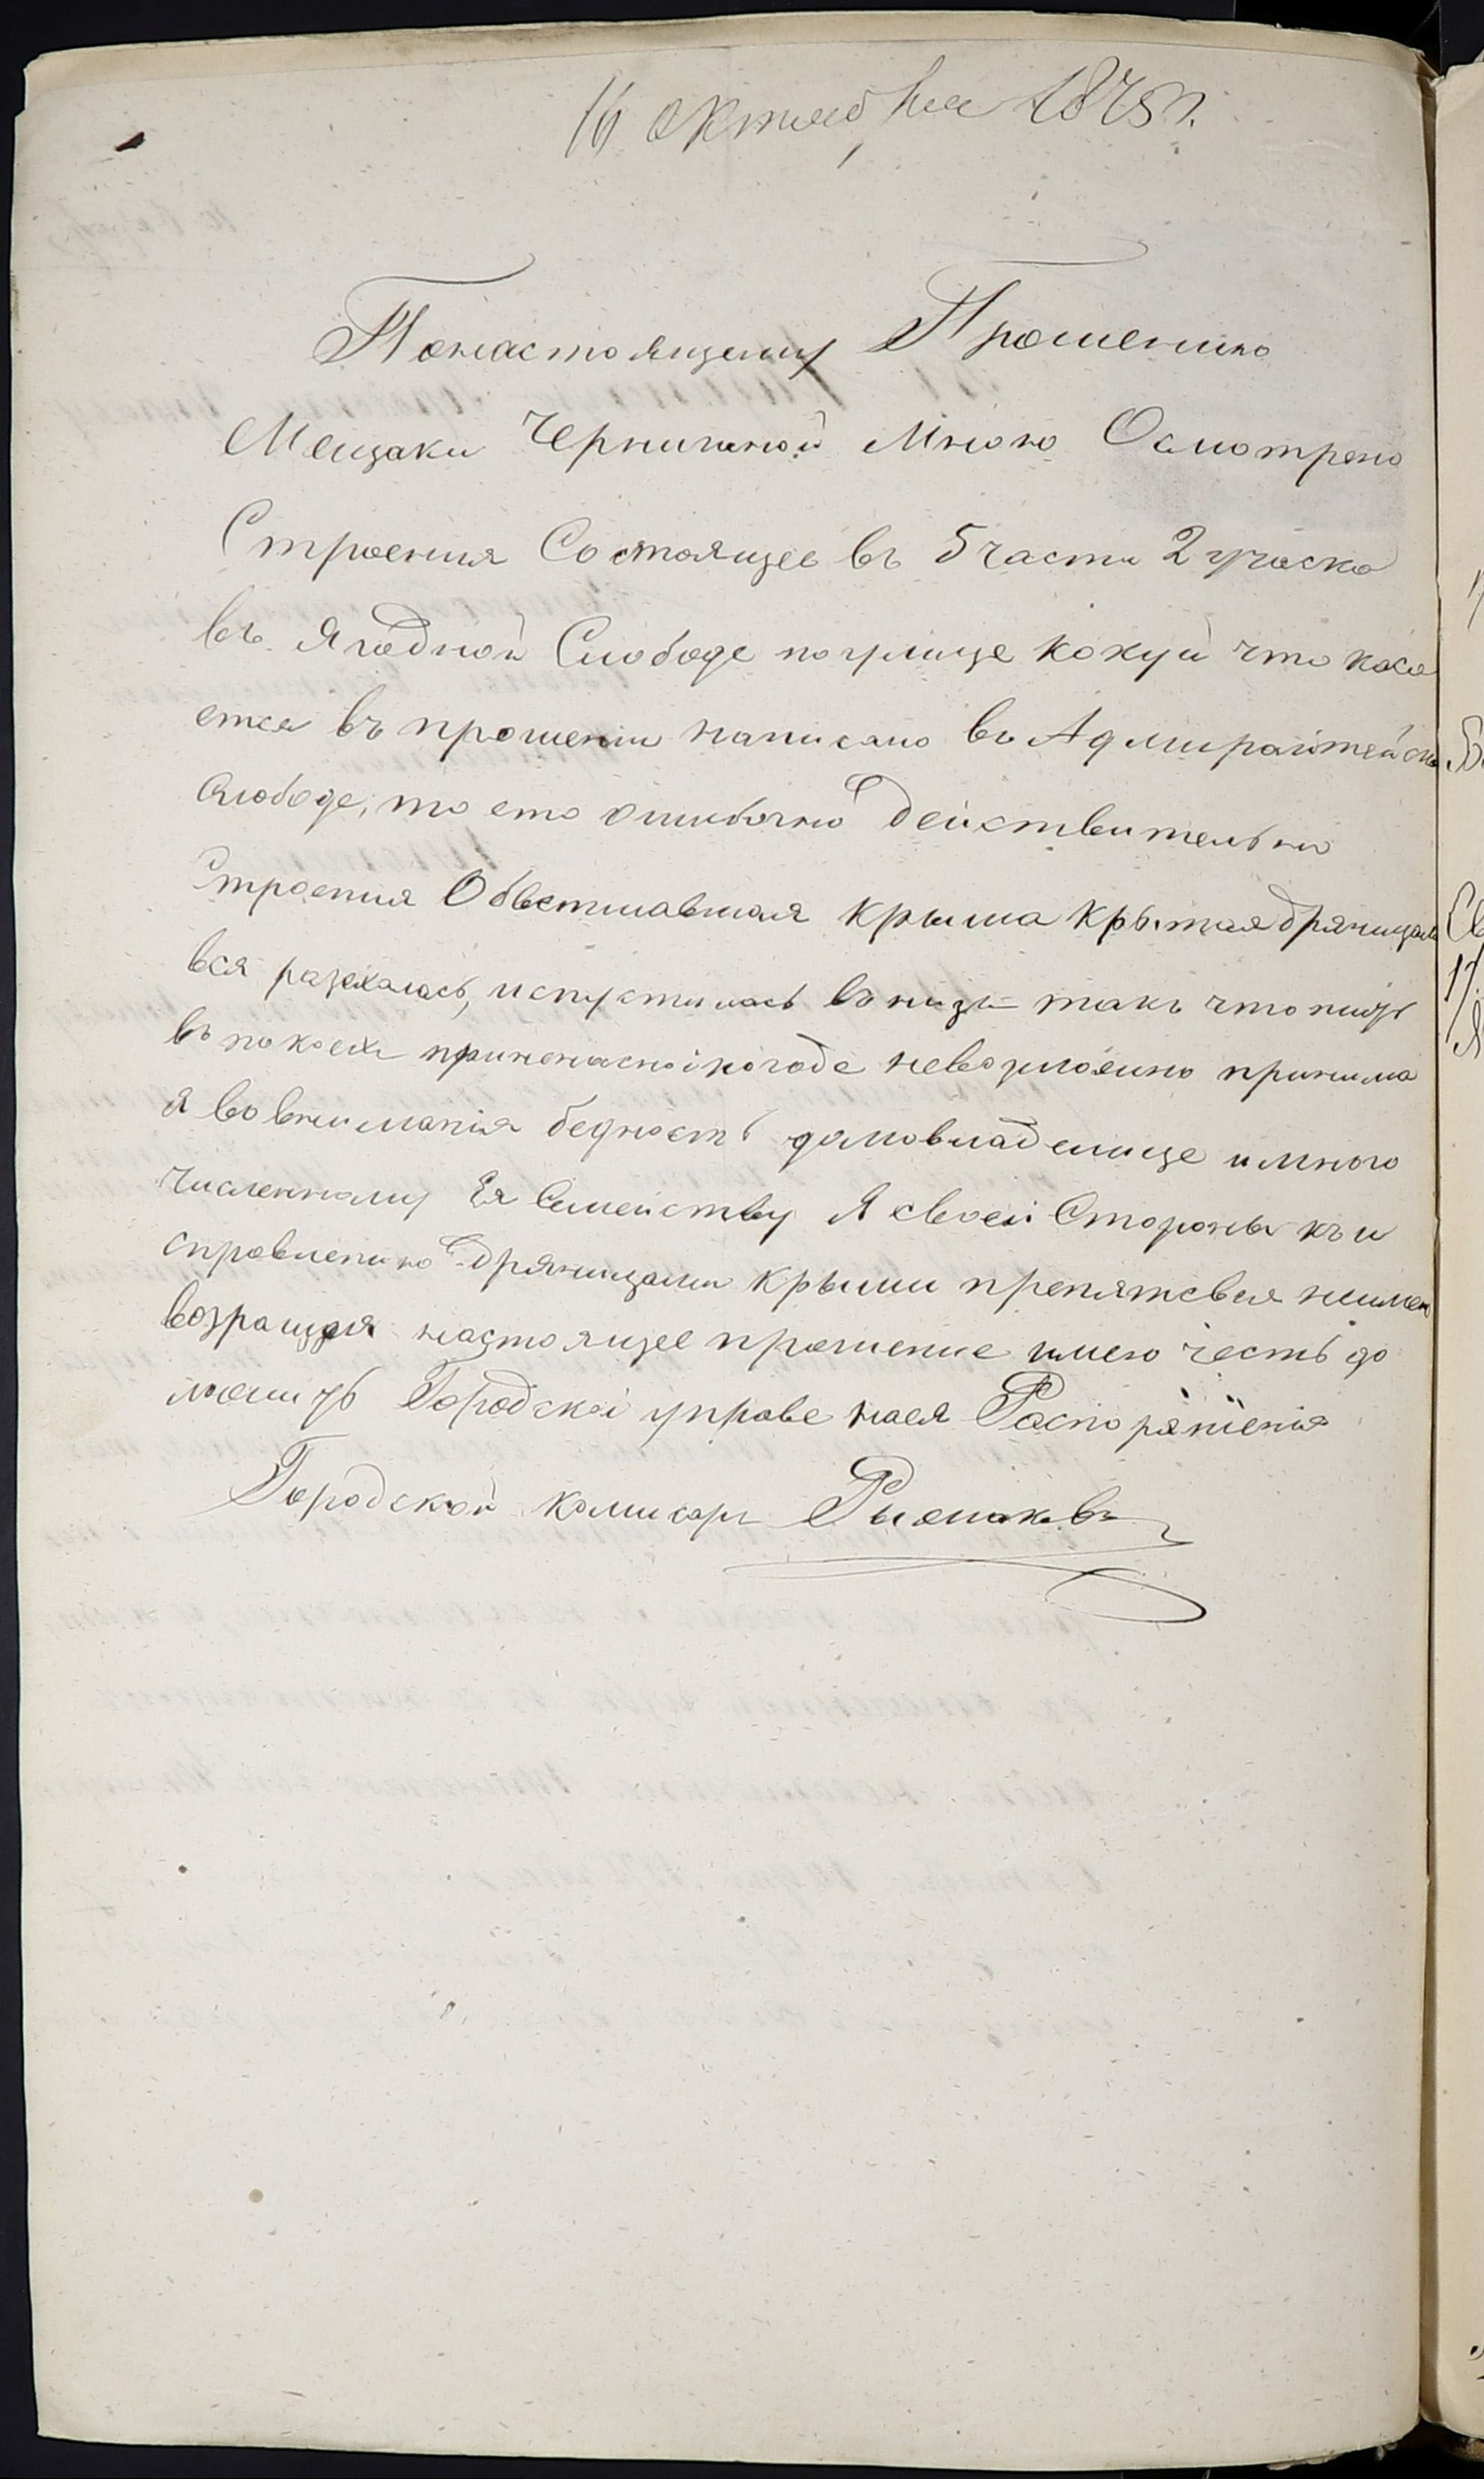 16 октября 1875 г.
Понастоящему Прошению
Мещаки Чернышной Мною Осмотрено
Строения Состоящее въ 5 части 2 участка
въ Ягодной Слободе поулице кокуй что каса
ется въ прошении написано въ Адмиралтейско
слободе, то ето ошибочно действительно
Строения Обветшавшая крыша крытая драницами
вся разехалась, испустилась въ низъ такъ что жить
въ покоехъ приненасной погоде невозможно принима
я во внимания бедность домовладелице имного
численному Ея Семейству Я своей Стороны къ и
справлению дряницами крыши препятсвея неимею
возращая настоящее прошение имею честь до
ложить Городской управе наея Распоряжения
Городской комисаръ